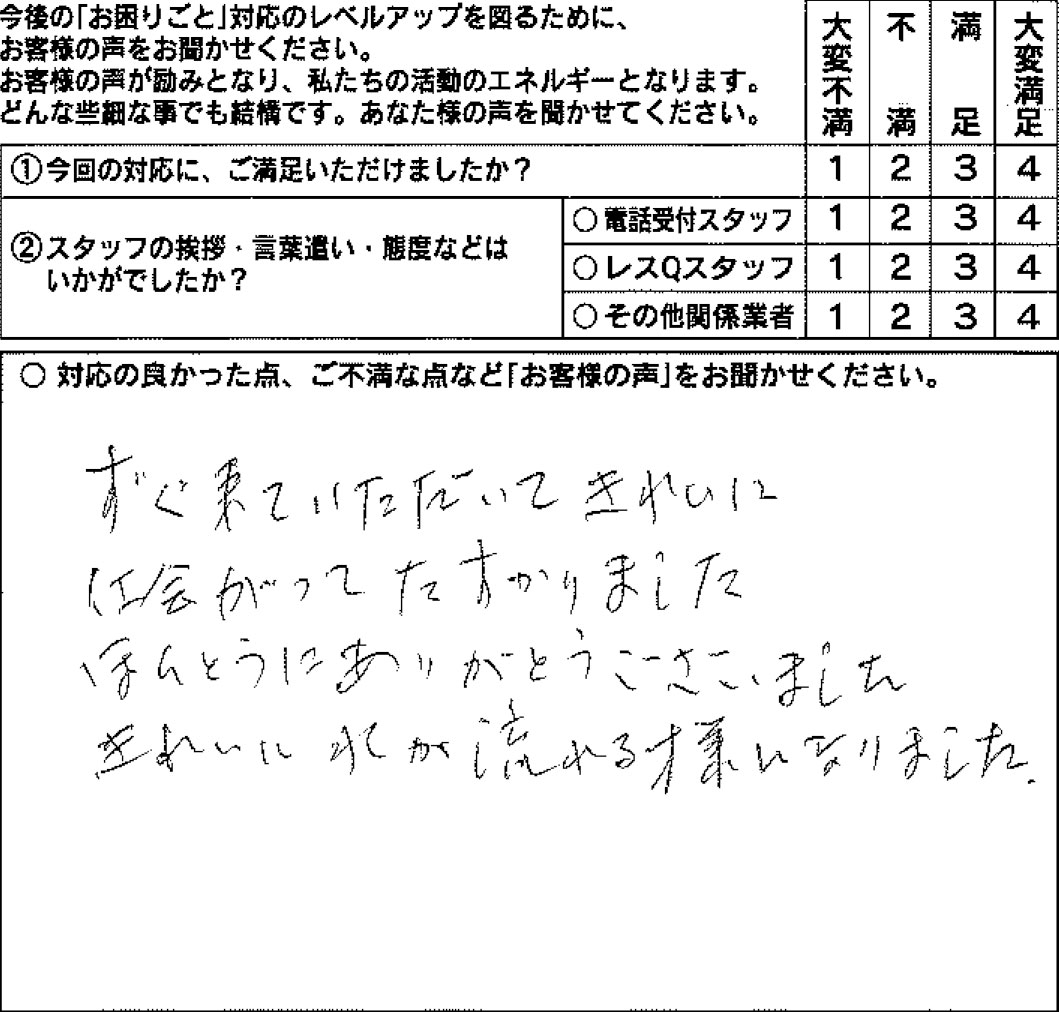 今後の「お困りごと」対応のレベルアップを図るために、
お客様の声をお聞かせください。
お客様の声が励みとなり、私たちの活動のエネルギーとなります。
どんな些細な事でも結構です。あなた様の声を聞かせてください。
大変不満 不満 満足 大変満足
①今回の対応に、ご満足いただけましたか? 1 2 3 4
②スタッフの挨拶・言葉遣い・態度などは
いかがでしたか?
○電話受付スタッフ 1 2 3 4
○レスQスタッフ 1 2 3 4
○その他関係業者 1 2 3 4
○ 対応の良かった点、ご不満な点など「お客様の声」をお聞かせください。
すぐ来ていただいてきれいに
仕会がってたすかりました
ほんとうにありがとうございました
きれいに水が流れる様になりました.